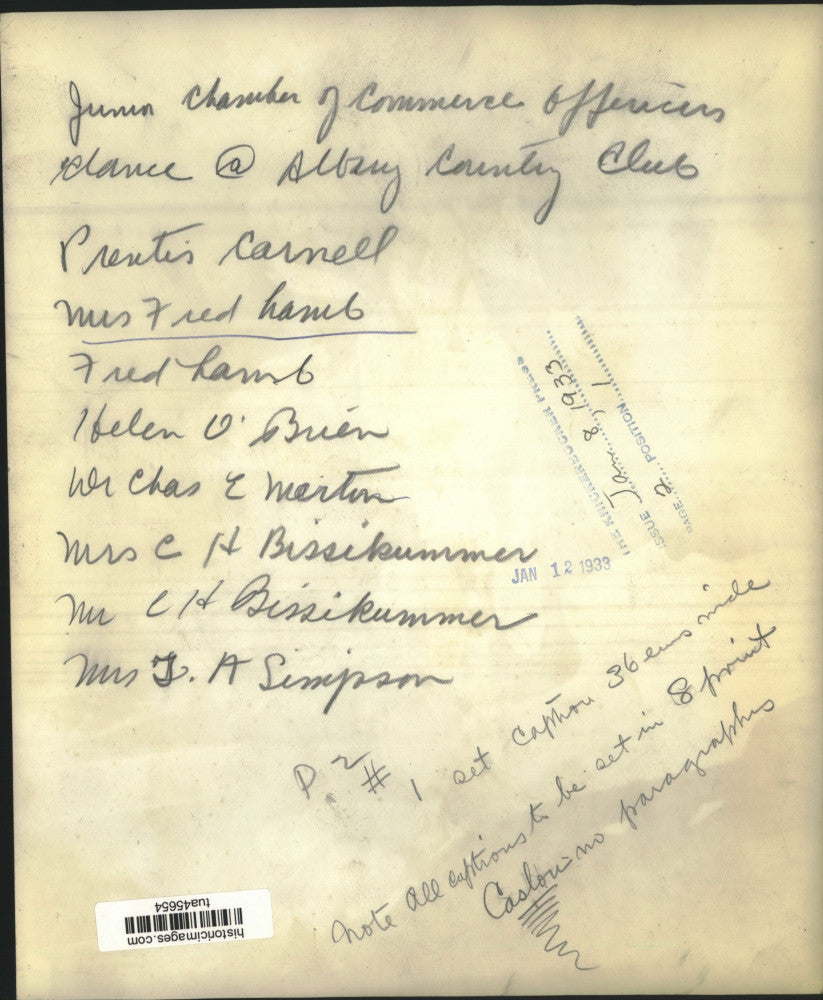 Junior Chamber of Commerce Officers
dance @ Albany Country Club
Prentis Carnell
Mrs Fred Lamb
Fred Lamb
Helen O'Brien
Mr Chas E Morton
Mrs C H Bissikummer
Mr C H Bissikummer
Mrs F. A Simpson
THE KNICKERBOCKER PRESS
ISSUE Jan. 8, 1933
PAGE 2 POSITION 1
JAN 12 1933
P 2 # 1 set caption 36 ems wide
note All captions to be set in 8 point
Caslon no paragraphs
historicimages.com
tua45654